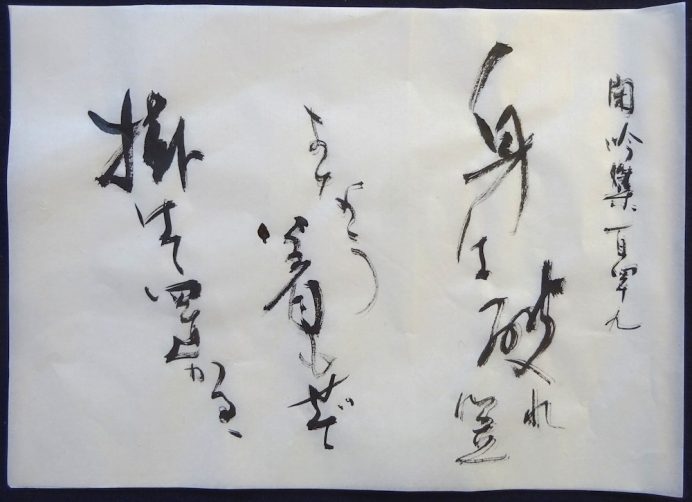 閑吟集百四十九
身は破れ笠
よなう着もせで
掛けて置かるゝ